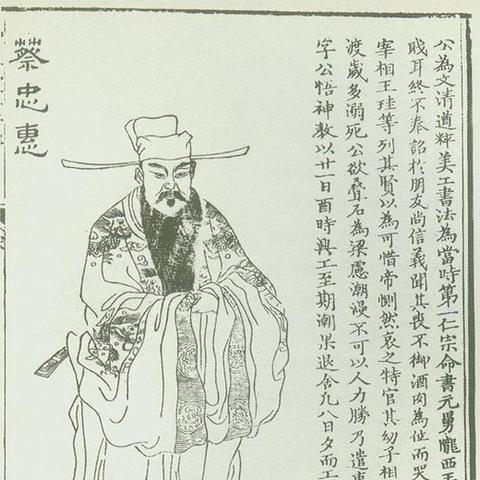 公為文清遒粹美工書法為當時第一仁宗命書元舅隴西王
賤耳終不奉詔於朋友尚信義聞其喪不御酒肉為位而哭
宰相王珪等列其賢以為可惜帝惻然哀之特官其幼子相
渡歲多溺死公欲疊石為梁慮潮漫不可以人力勝乃遺
字公悟神教以廿一日酉時興工至期潮果退舍凡八日夕而工
蔡忠惠